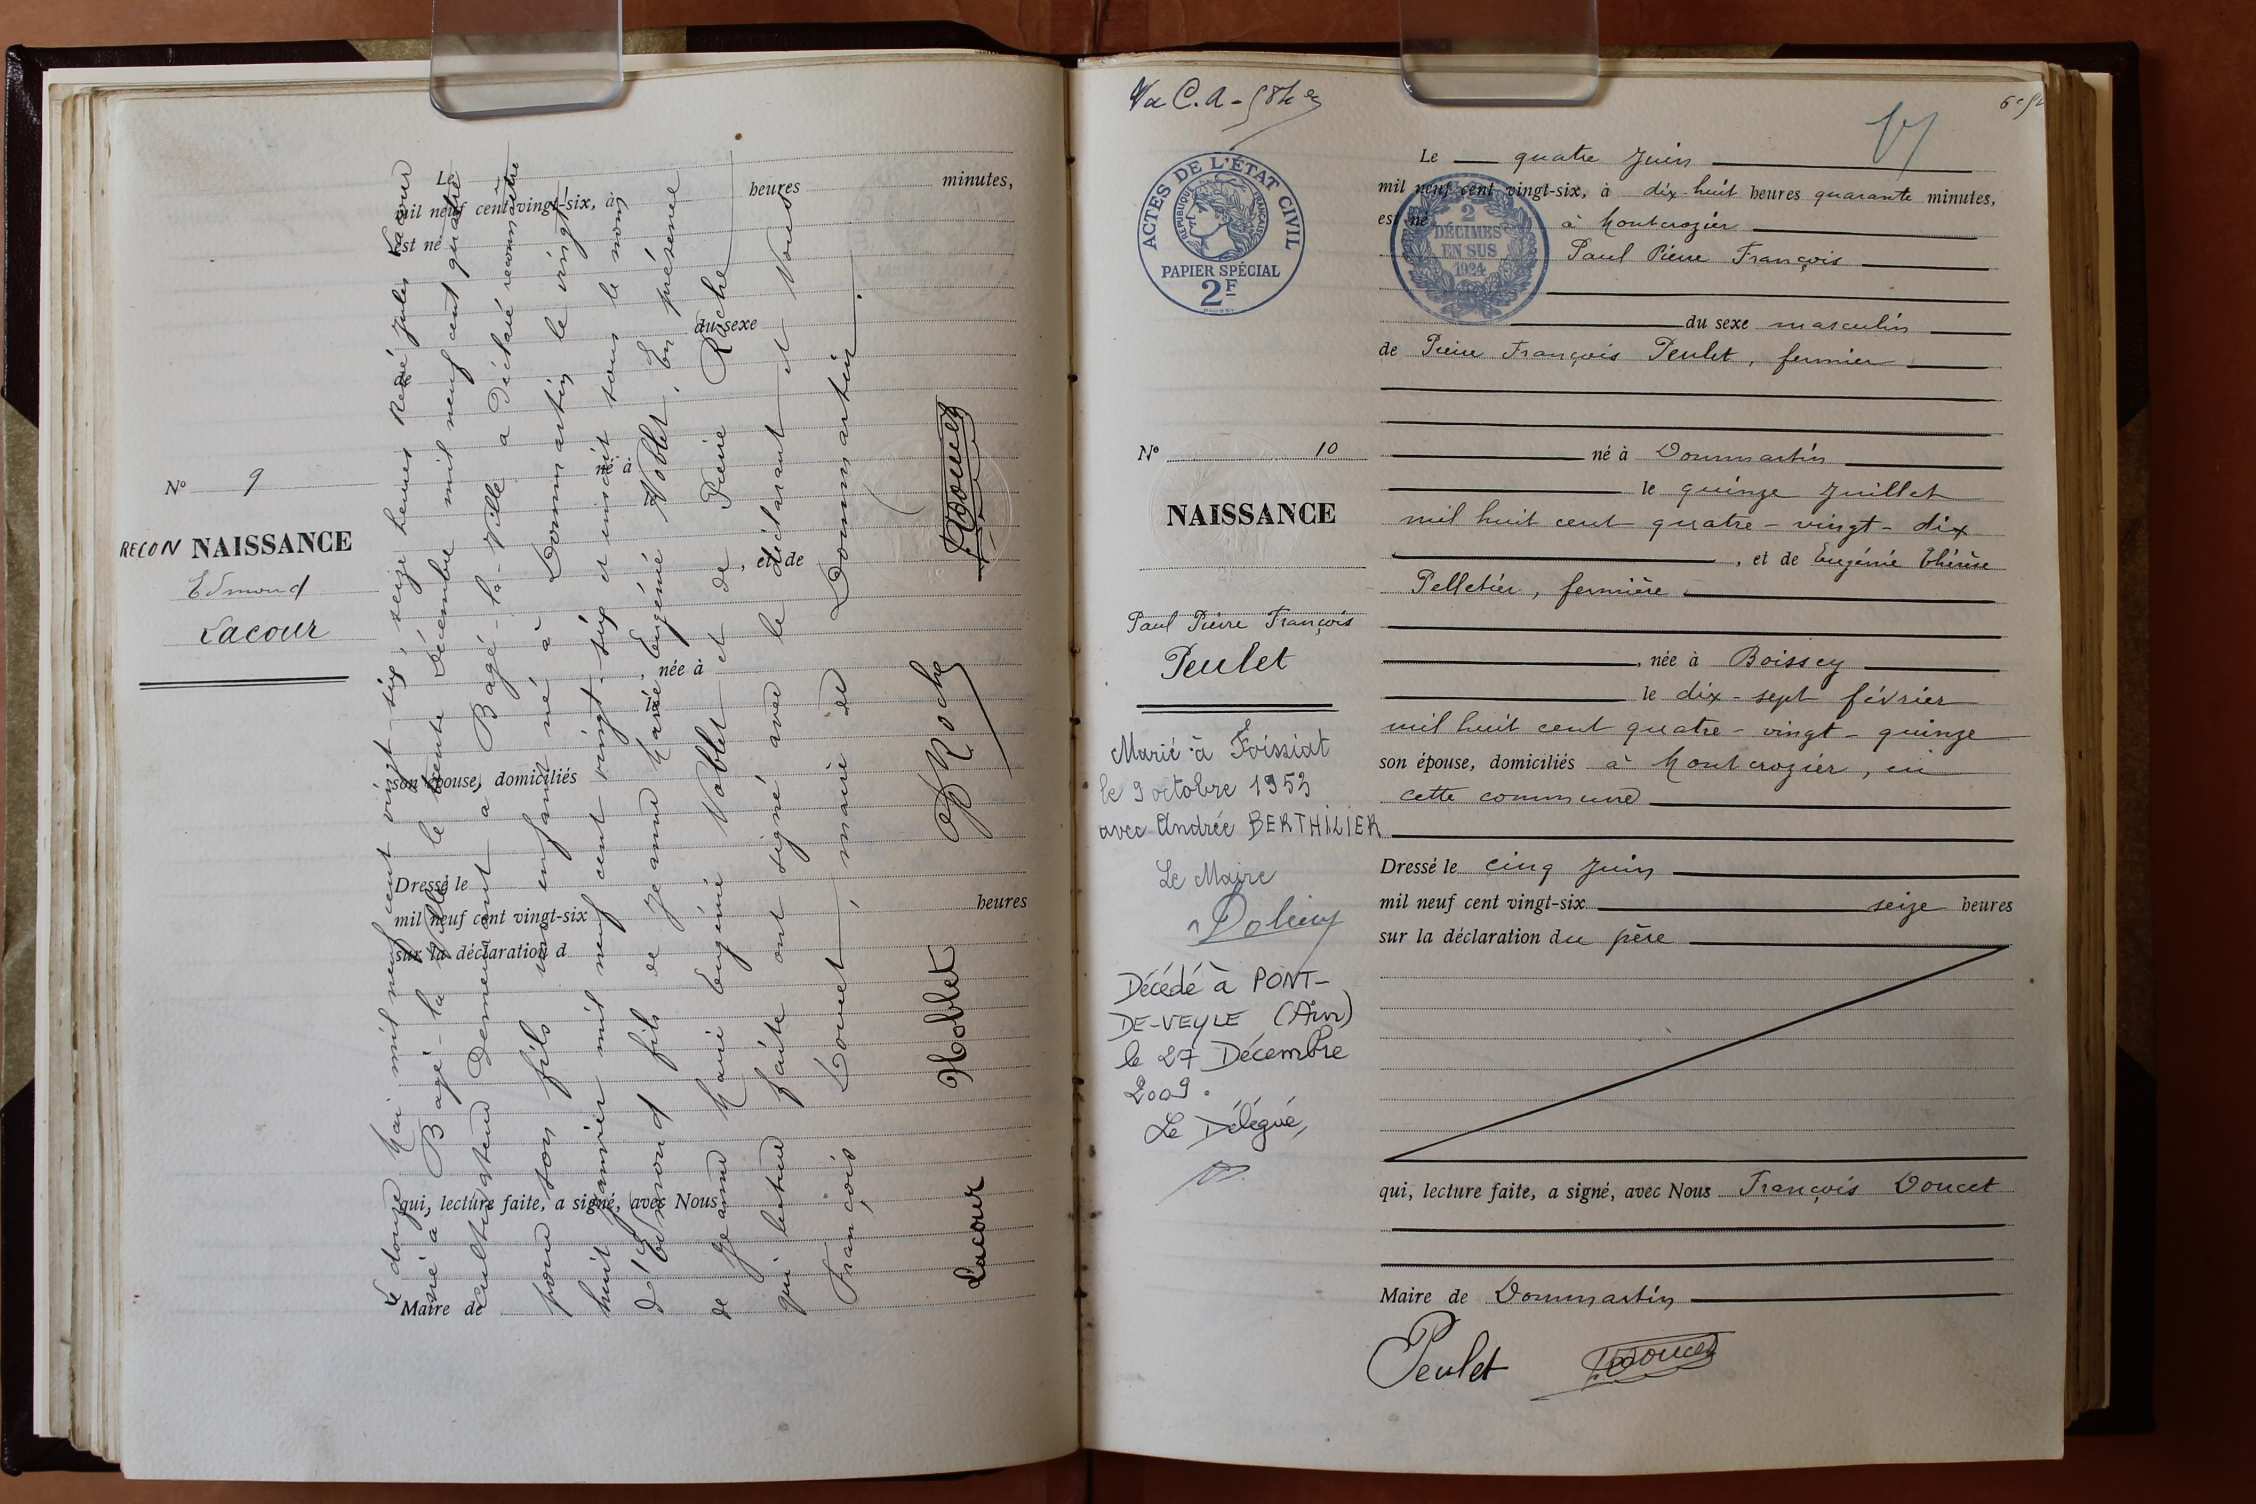 Nº 9
RECON NAISSANCE
Edmond
Lacour
Le
heures minutes,
mil neuf cent vingt-six, à
est né
du sexe
de
né à
, et de
née à
son épouse, domiciliés
Dressé le
mil neuf cent vingt-six heures
sur la déclaration d
qui, lecture faite, a signé, avec Nous
Maire de
Le douze Mai mil neuf cent vingt-six, seize heures René Jules Lacour
né à Bagé-la-Ville le trente Décembre mil neuf cent quatre
cultivateur demeurant à Bagé-la-Ville a déclaré reconnaître
pour son fils un enfant né à Dommartin le vingt
huit janvier mil neuf cent vingt-six et inscrit sous le nom
d'Edmond fils de Jeanne Marie Eugénie Noblet. En présence
de Jeanne Marie Eugénie Noblet et de Pierre Roche
qui lecture faite ont signé avec le déclarant et Nous
François Doucet, maire de Dommartin.
Lacour Noblet Roche Doucet
Vu C.A.
ACTES DE L'ÉTAT CIVIL
RÉPUBLIQUE FRANÇAISE
PAPIER SPÉCIAL
2F
2
DÉCIMES
EN SUS
1924
Nº 10
NAISSANCE
Paul Pierre François
Peulet
Marié à Foissiat
le 9 octobre 1953
avec Andrée BERTHILIER
Le Maire
Décédé à PONT-
DE-VEYLE (Ain)
le 27 Décembre
2009.
Le Délégué,
Le quatre Juin
mil neuf cent vingt-six, à dix huit heures quarante minutes,
est né à Montcrozier
Paul Pierre François
du sexe masculin
de Pierre François Peulet, fermier
né à Dommartin
le quinze Juillet
mil huit cent quatre-vingt-dix
, et de Eugénie Thérèse
Pelletier, fermière
, née à Boissey
le dix-sept février
mil huit cent quatre-vingt-quinze
son épouse, domiciliés à Montcrozier, en
cette commune
Dressé le cinq Juin
mil neuf cent vingt-six seize heures
sur la déclaration du père
qui, lecture faite, a signé, avec Nous François Doucet
Maire de Dommartin
Peulet Doucet